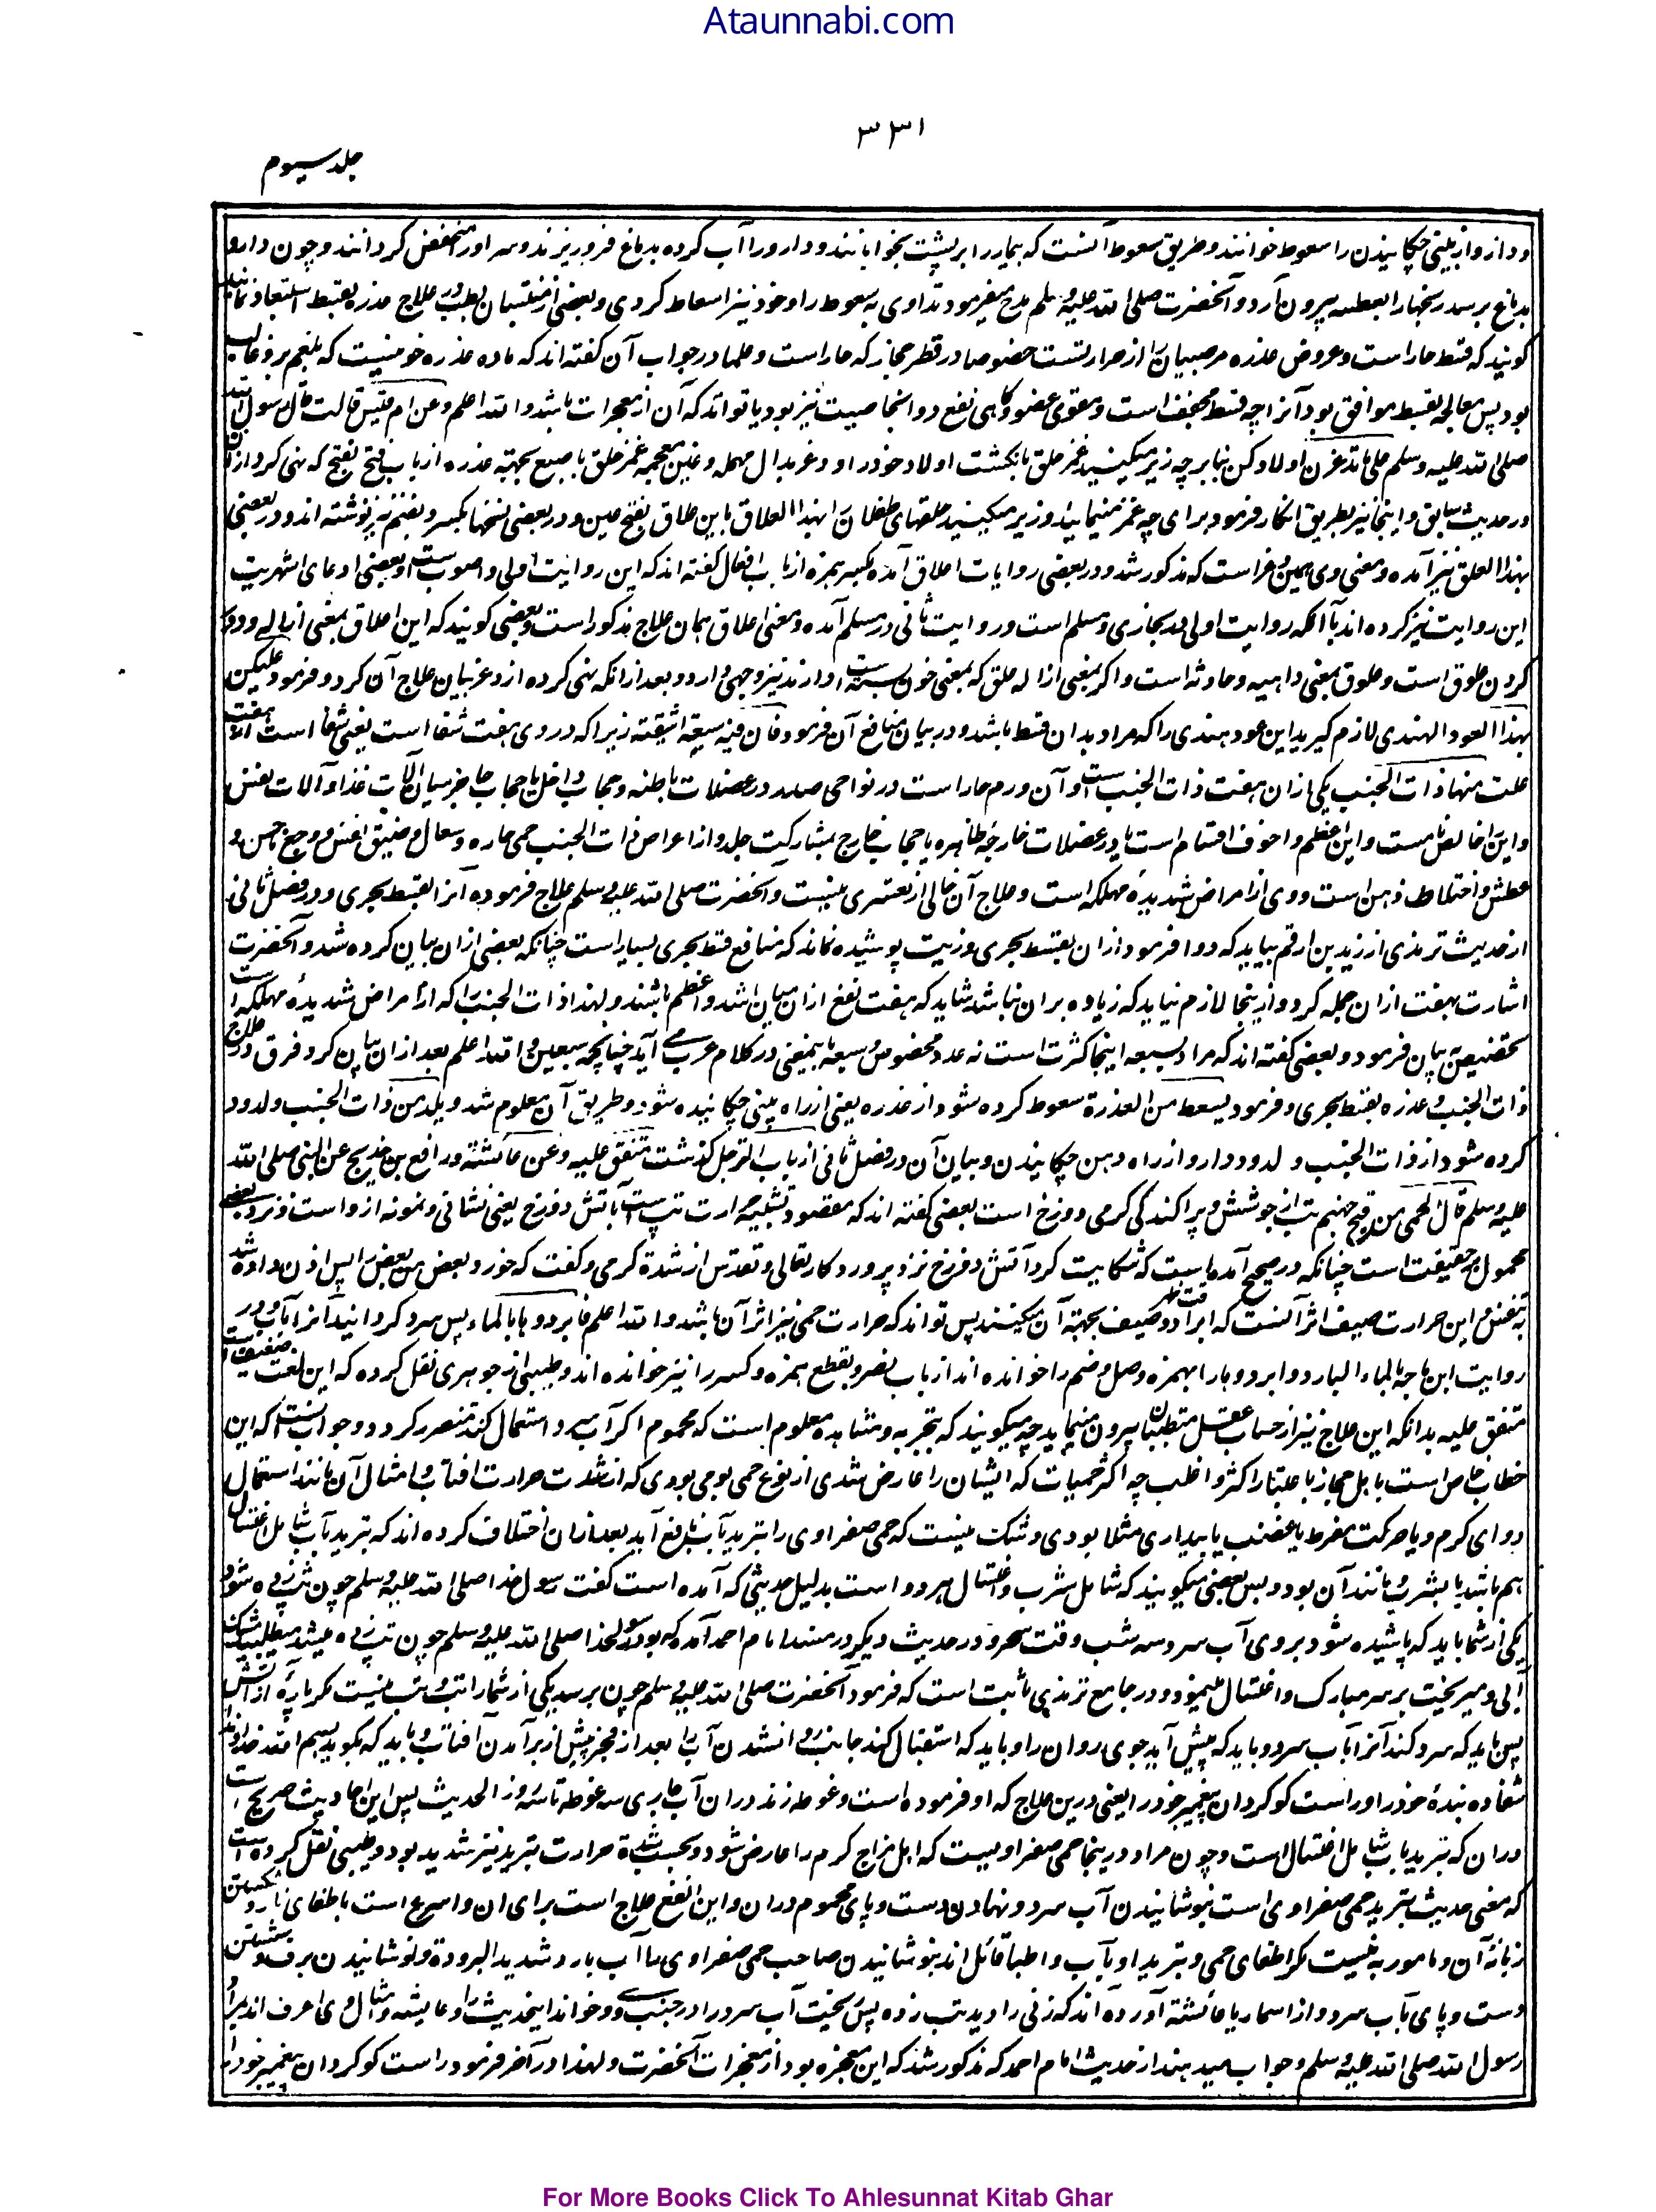 Ataunnabi.com
۳۳۱
جلد سیوم
و دارو از بینی چکانیدن را سعوط خوانند و طریق سعوط آنست که بیمار را بر پشت بخوابانند و دارو را آب کرده بدماغ فروریزند و سر او را منخفض گردانند و چون دارو
بدماغ برسد رنجها را بعطسه بیرون آرد و آنحضرت صلی الله علیه و سلم مدح میفرمود تداوی به سعوط را و خود نیز اسعاط کردی و بعضی از منتسبان بطب در علاج عذره بقسط استبعاد نمایند
گویند که قسط حار است و عروض عذره مر صبیان را از حرارتست خصوصا در قطر حجاز که حار است و علما در جواب آن گفته اند که ماده عذره خونیست که بلغم برو غالب
بود پس معالجه بقسط موافق بود آنرا چه قسط مجفف است و مقوی عضو و گاهی نفع دوا بخاصیت نیز بود یا تواند که آن از معجزات باشد والله اعلم وعن ام قیس قالت قال رسول الله
صلی الله علیه وسلم علی ما تدغرن اولادکن بنا بر چه زیر میکنید غمز حلق بانگشت اولاد خود را و دغر بدال مهمله و غین معجمه غمز حلق باصبع بجهة عذره از باب فتح یفتح که نهی کرد ازان
در حدیث سابق و اینجا نیز بطریق انکار فرمود برای چه غمز مینمایید و زیر میکنید حلقهای طفلان را بهذا العلاق باین علاق بفتح عین و در بعضی نسخها بکسر و بضم نیز نوشته اند و در بعضی
بهذا العلق نیز آمده و معنی وی همین دغر است که مذکور شد و در بعضی روایات اعلاق آمده بکسر همزه از باب افعال گفته اند که این روایت اولی و اصوب است و بعضی ادعای اشهریت
این روایت نیز کرده اند با آنکه روایت اولی در بخاری و مسلم است و روایت ثانی در مسلم آمده و معنی اعلاق همان علاج مذکور است و بعضی گویند که این اعلاق بمعنی ازاله و دور
کردن علوق است و علوق بمعنی داهیه و حادثه است و اگر بمعنی ازاله علق که بمعنی خون بسته است دارند نیز وجهی دارد و بعد ازانکه نهی کرده از دغر بیان علاج آن کرد و فرمود علیکن
بهذا العود الهندی لازم گیرید این عود هندی را که مراد بدان قسط باشد و در بیان منافع آن فرمود فان فیه سبعة اشفیة زیرا که در وی هفت شفا است یعنی شفا است از هفت
علت منها ذات الجنب یکی ازان هفت ذات الجنب است و آن ورم حار است در نواحی صدر در عضلات باطنه و حجاب داخل یا حجاب حاجز میان آلات غذا و آلات نفس
و این را خالص نام است و این اعظم و اخوف اقسام است یا در عضلات خارجه ظاهره یا حجاب خارج بمشارکت جلد و از اعراض ذات الجنب حمی حاره و سعال و ضیق نفس و وجع ناخس و
عطش و اختلاط ذهن است و وی از امراض شدیدۀ مهلکه است و علاج آن خالی از تعسری نیست و آنحضرت صلی الله علیه وسلم علاج فرموده آنرا بقسط بحری و در فصل ثانی
از حدیث ترمذی از زید بن ارقم بیاید که دوا فرمود ازان بقسط بحری و زیت پوشیده نماند که منافع قسط بحری بسیار است چنانکه بعضی ازان بیان کرده شد و آنحضرت
اشارت بهفت ازان جمله کرد و ازینجا لازم نیاید که زیاده بران نباشد شاید که هفت نفع ازان میان اشد و اعظم باشند و لهذا ذات الجنب را که از امراض شدیدۀ مهلکه است
بتخصیص بیان فرمود و بعضی گفته اند که مراد بسبعه اینجا کثرت است نه عدد مخصوص و سبعه باین معنی در کلام عرب می آید چنانچه سبعین والله اعلم بعد ازان بیان کرد فرق در علاج
ذات الجنب و عذره بقسط بحری و فرمود یسعط من العذرة سعوط کرده شود از عذره یعنی از راه بینی چکانیده شود و طریق آن معلوم شد و یلد من ذات الجنب و لدود
کرده شود از ذات الجنب و لدود دارو از راه دهن چکانیدن و بیان آن در فصل ثانی از باب الترجل گذشت متفق علیه وعن عائشة ورافع بن خدیج عن النبی صلی الله
علیه وسلم قال الحمی من فیح جهنم تب از جوشش و پراکندگی گرمی دوزخ است بعضی گفته اند که مقصود تشبیه حرارت تب است بآتش دوزخ یعنی نشانی و نمونه ازو است و نزد بعضی
محمول بر حقیقت است چنانکه در صحیح آمده است که شکایت کرد آتش دوزخ نزد پروردگار تعالی و تقدس از شدة گرمی و گفت که خورد بعض من بعض را پس اذن داده شد
بتنفس و این حرارت صیف اثر آنست که ابراد در صیف بجهة آن میکنند پس تواند که حرارت حمی نیز اثر آن باشد والله اعلم فابردوها بالماء پس سرد گردانید آنرا بآب و در
روایت ابن ماجه بالماء البارد و ابردوها را بهمزه وصل و ضم را خوانده اند از باب نصر و بقطع همزه و کسر را نیز خوانده اند و طیبی از جوهری نقل کرده که این لغت ضعیف است
متفق علیه بدانکه این علاج نیز از حساب عقل متطببان بیرون مینماید چه میگویند که بتجربه و مشاهده معلوم است که محموم اگر آب سرد استعمال کند متضرر گردد و جواب آنست که این
خطاب خاص است باهل حجاز باعتبار اکثر و اغلب چه اکثر حمیات که ایشان را عارض شدی از نوع حمی یومی بودی که از شدت حرارت افتاب و امثال آن مانند استعمال
دوای گرم و یا حرکت مفرط یا غضب یا بیداری مثلا بودی و شک نیست که حمی صفراوی را تبرید بآب نافع آید بعد ازان اختلاف کرده اند که تبرید بآب شامل اغتسال
هم باشد یا بشرب و مانند آن بود و بس بعضی میگویند که شامل شرب و اغتسال هر دو است بدلیل حدیثی که آمده است گفت رسول خدا صلی الله علیه وسلم چون تب زده شود
یکی از شما باید که پاشیده شود بروی آب سرد سه شب وقت سحر و در حدیث دیگر در مسند امام احمد آمده که بود رسولخدا صلی الله علیه وسلم چون تب زده میشد میطلبید مشک
آبی و میریخت بر سر مبارک و اغتسال مینمود و در جامع ترمذی ثابت است که فرمود آنحضرت صلی الله علیه وسلم چون برسد یکی از شما را تب و تب نیست مگر پارۀ از آتش
پس باید که سرد کند آنرا بآب سرد و باید که پیش آید جوی روان را و باید که استقبال کند جانب روانشدن آب را بعد از فجر پیش از برآمدن افتاب و باید که بگوید بسم الله خداوندا
شفا ده بندۀ خود را و راست گو گردان پیغمبر خود را یعنی درین علاج که او فرموده است و غوطه زند دران آب جاری سه غوطه تا سه روز الحدیث پس این احادیث صریح است
دران که تبرید بآب شامل اغتسال است و چون مراد درینجا حمی صفراویست که اهل مزاج گرم را عارض شود و بحسب شدة حرارت تبرید نیز شدید بود و طیبی نقل کرده است
که معنی حدیث تبرید حمی صفراوی است بنوشانیدن آب سرد و نهادن دست و پای محموم دران و این انفع علاج است برای ان و اسرع است باطفای نار و تسکین
زبانۀ آن و مامور به نیست مگر اطفای حمی و تبرید او بآب و اطبا قائل اند بنوشانیدن صاحب حمی صفراوی را آب بارد شدید البرودة و نوشانیدن برف و شستن
دست و پای بآب سرد و از اسما ریا عائشة آورده اند که زنی را دید تب زده پس ریخت آب سرد را در جیب وی و خواند این حدیث را و عایشه و امثال وی اعرف اند بمراد
رسول الله صلی الله علیه وسلم و جواب میدهند از حدیث امام احمد که مذکور شد که این معجزه بود از معجزات آنحضرت و لهذا در آخر فرمود راست گو گردان پیغمبر خود را
For More Books Click To Ahlesunnat Kitab Ghar